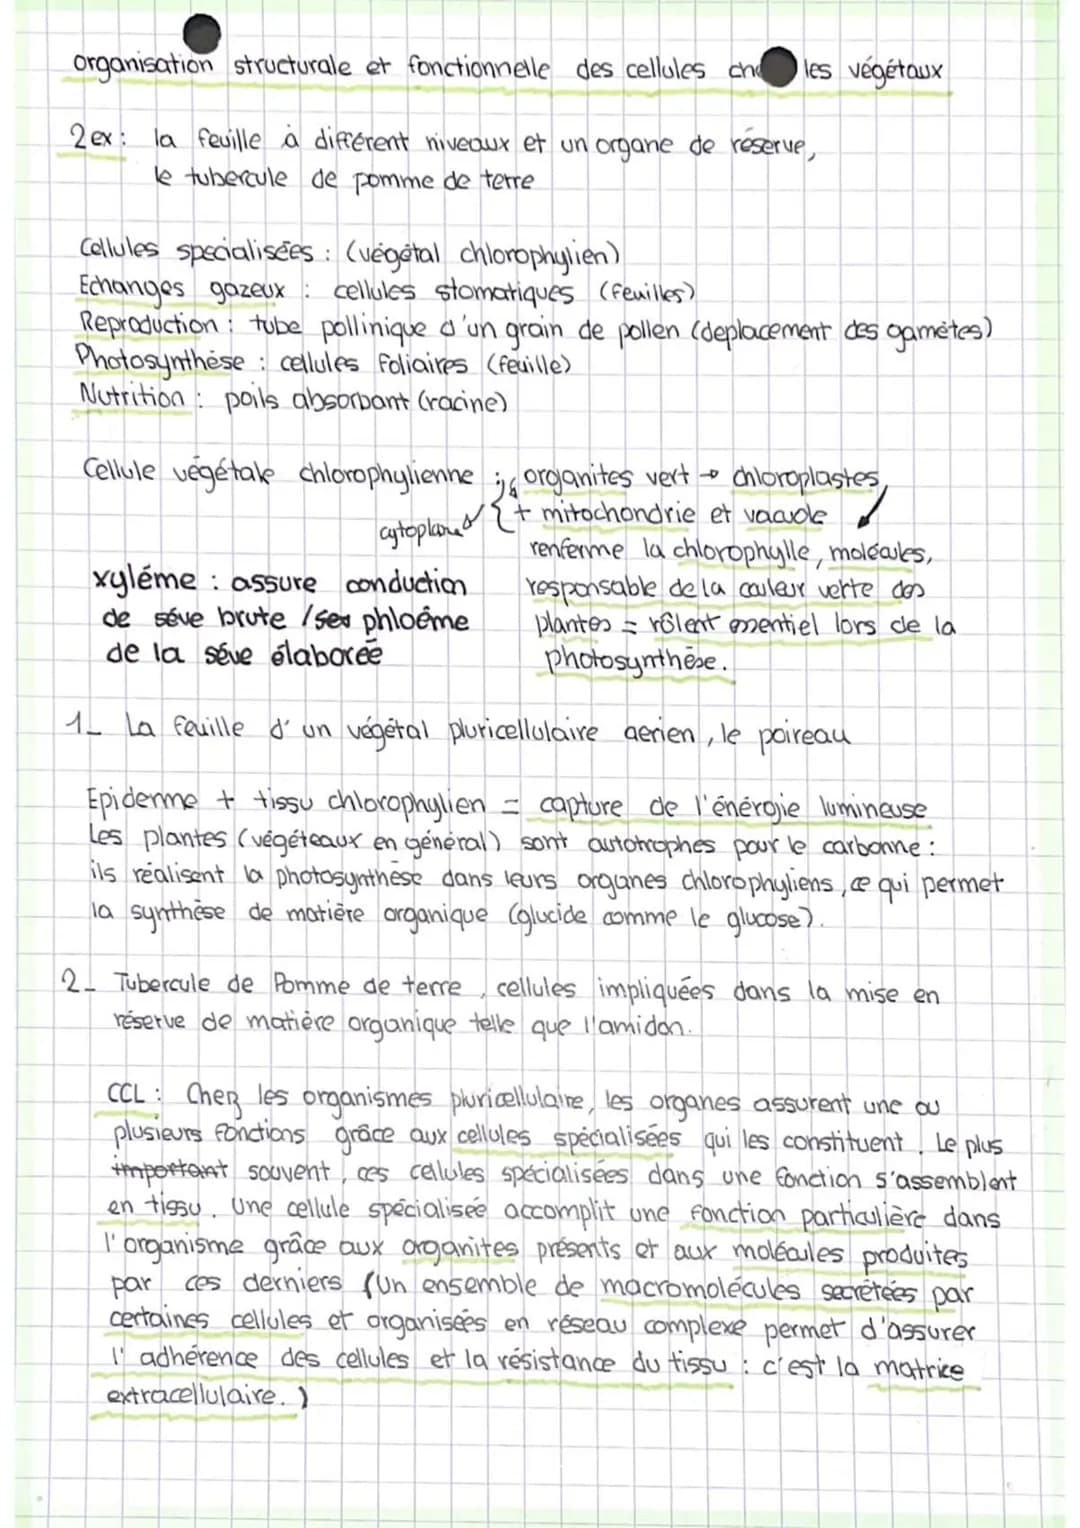 organisation structurale et fonctionnelle des cellules che les végétaux
2 ex : la feuille à différent niveaux et un organe de réserve,
le tubercule de pomme de terre
Cellules spécialisées : (végétal chlorophylien)
Echanges gazeux : cellules stomatiques (feuilles)
Reproduction : tube pollinique d'un grain de pollen (deplacement des gamètes)
Photosynthèse : cellules foliaires (feuille)
Nutrition : poils absorbant (racine)
Cellule végétale chlorophylienne : organites vert → chloroplastes,
cytoplasme { + mitochondrie et vacuole
renferme la chlorophylle, molécules,
responsable de la couleur verte des
plantes = rôlent essentiel lors de la
photosynthèse.
xylème : assure conduction
de séve brute / phloême
de la séve élaborée
1_ La feuille d'un végétal pluricellulaire aerien, le poireau
Epiderme + tissu chlorophylien = capture de l'énérgie lumineuse
Les plantes (végéteaux en général) sont autotrophes pour le carbonne :
ils réalisent la photosynthèse dans leurs organes chlorophyliens, ce qui permet
la synthèse de matière organique (glucide comme le glucose).
2_ Tubercule de Pomme de terre, cellules impliquées dans la mise en
réserve de matière organique telle que l'amidon.
CCL : Chez les organismes pluricellulaire, les organes assurent une ou
plusieurs fonctions grâce aux cellules spécialisées qui les constituent. Le plus
important souvent, ces cellules spécialisées dans une fonction s'assemblent
en tissu. Une cellule spécialisée accomplit une fonction particulière dans
l'organisme grâce aux organites présents et aux molécules produites
par ces derniers (Un ensemble de macromolécules secrétées par
certaines cellules et organisées en réseau complexe permet d'assurer
l'adhérence des cellules et la résistance du tissu : c'est la matrice
extracellulaire.)